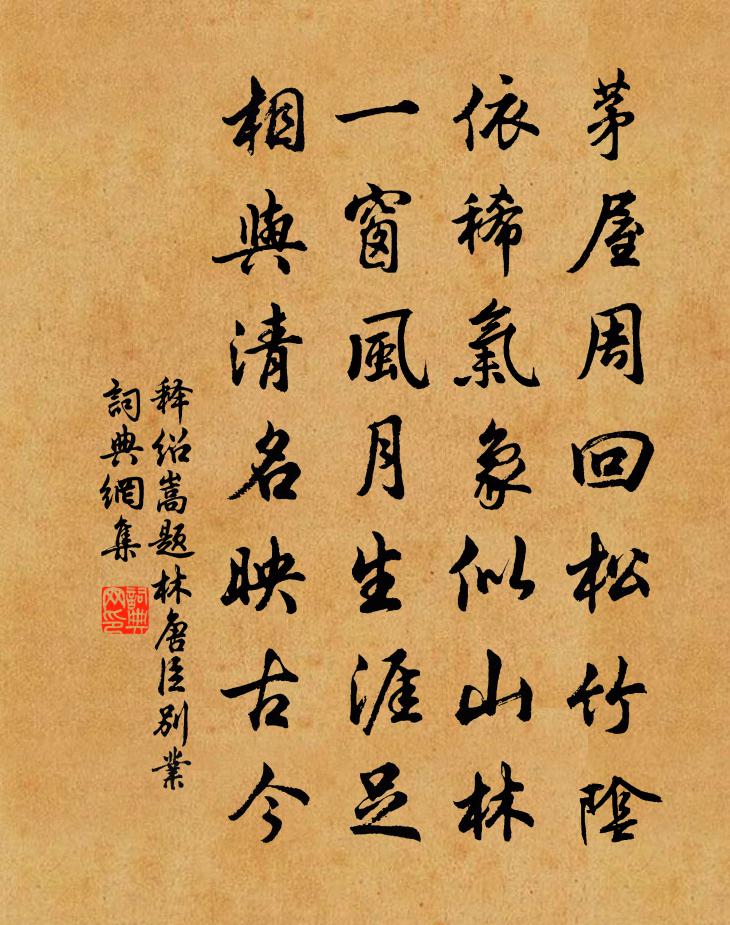 茅屋周回松竹陰
依稀氣象似山林
一窗風月生涯足
相與清名映古今
释绍嵩题林唐臣别業
詞典網集
詞典网印